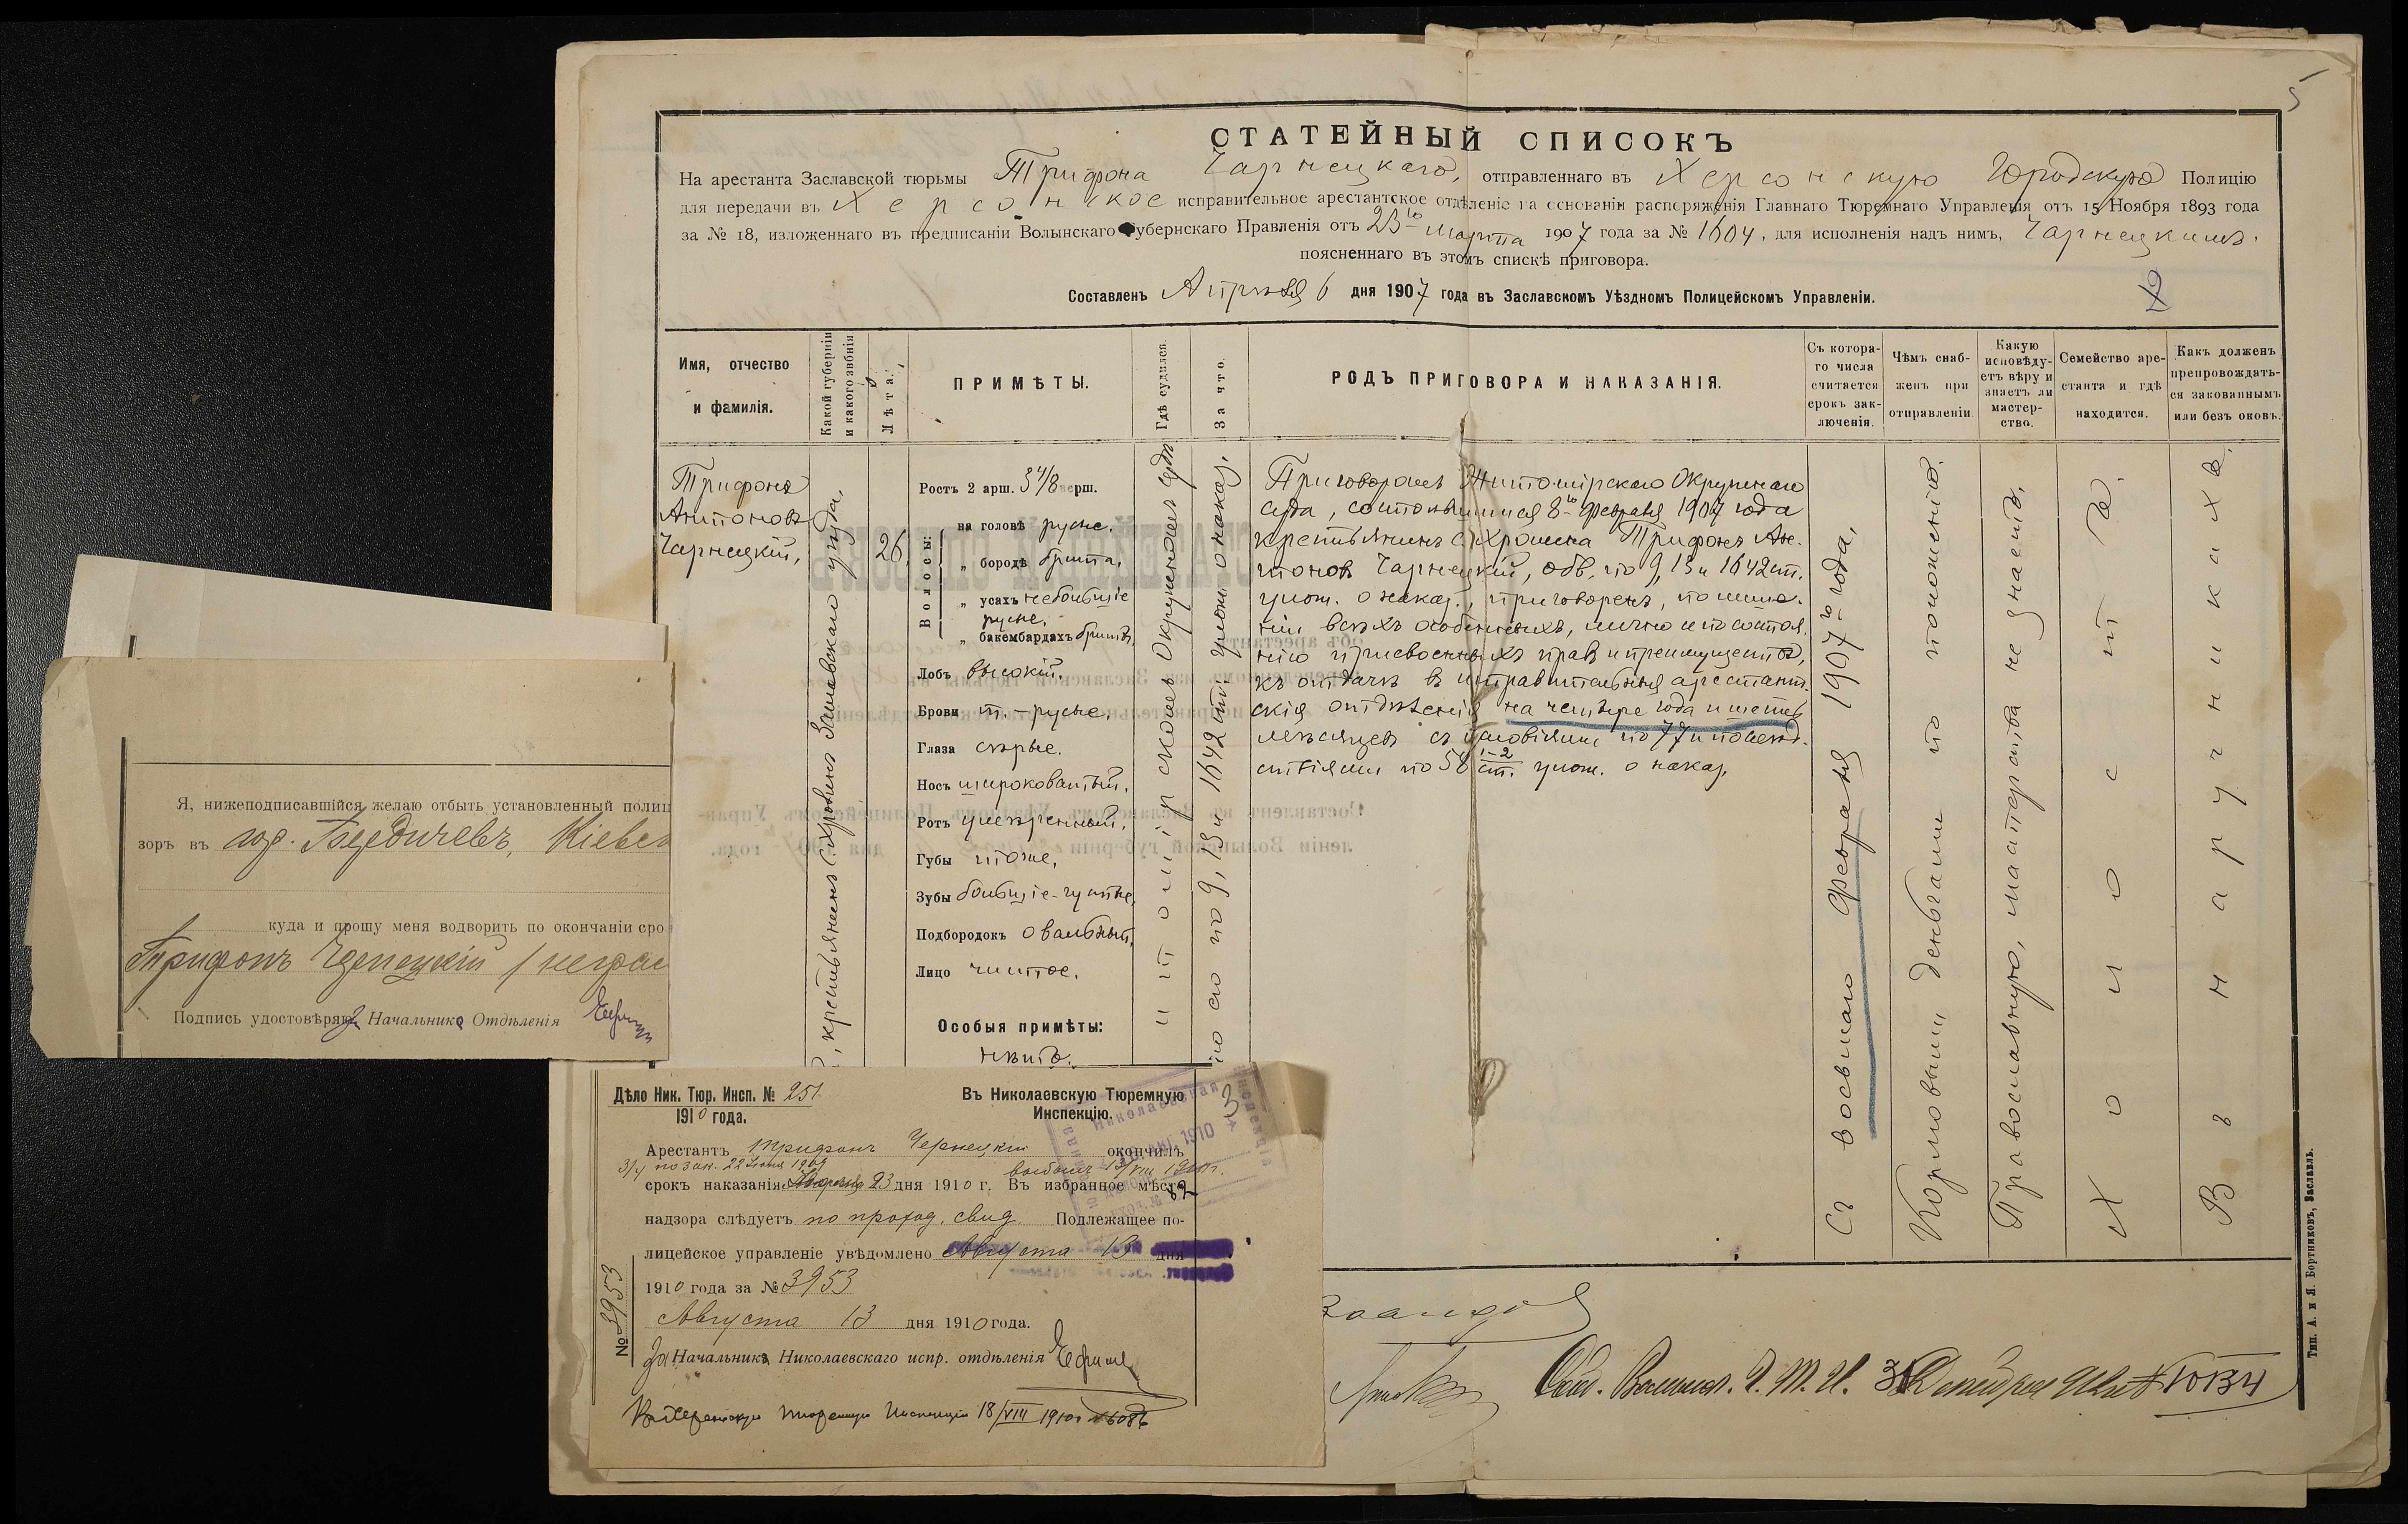 5
СТАТЕЙНЫЙ СПИСОКЪ
На арестанта Заславской тюрьмы Трифона Чарнецкаго, отправленнаго въ Херсонскую Городскую Полицію
для передачи въ Херсонское исправительное арестантское отдѣленіе на основаніи распоряженія Главнаго Тюремнаго Управленія отъ 15 Ноября 1893 года
за № 18, изложеннаго въ предписаніи Волынскаго Губернскаго Правленія отъ 23го Марта 1907 года за № 1604, для исполненія надъ нимъ, Чарнецкимъ,
поясненнаго въ этомъ спискѣ приговора.
Составленъ Апрѣля 6 дня 1907 года въ Заславскомъ Уѣздномъ Полицейскомъ Управленіи.
Имя, отчество
и фамилія.
Какой губерніи
и какого званія
Лѣта.
ПРИМѢТЫ.
Гдѣ судился.
За что.
РОДЪ ПРИГОВОРА И НАКАЗАНІЯ.
Съ котора-
го числа
считается
срокъ зак-
люченія.
Чѣмъ снаб-
женъ при
отправленіи
Какую
исповѣду-
етъ вѣру и
знаетъ ли
мастер-
ство.
Семейство аре-
станта и гдѣ
находится.
Какъ долженъ
препровождать-
ся закованнымъ
или безъ оковъ.
Трифонъ
Антоновъ
Чарнецкій,
крестьянинъ с. Хровинъ Заславскаго уѣзда,
26
Ростъ 2 арш. 3 4/8 верш.
Волосы:
на головѣ русые,
„ бородѣ брита,
„ усахъ небольшіе
русые,
„ бакембардахъ бриты,
Лобъ высокій,
Брови т.-русые,
Глаза сѣрые,
Носъ широковатый,
Ротъ умѣренный,
Губы тоже,
Зубы большіе-чистые,
Подбородокъ овальный,
Лицо чистое,
Особыя примѣты:
нѣтъ.
Житомірскомъ Окружномъ судѣ
по 9, 13 и 1642 ст. улож. о наказ,
Приговоромъ Житомірскаго Окружнаго
суда, состоявшимся 8го февраля 1907 года
крестьянинъ с. Хровина Трифонъ Ан-
тоновъ Чарнецкій, обв. по 9, 13 и 1642 ст.
улож. о наказ., приговоренъ, по лише-
ніи всѣхъ особенныхъ, лично и по состоя-
нію присвоенныхъ правъ и преимуществъ,
къ отдачѣ въ исправительныя арестант-
скія отдѣленія на четыре года и шесть
мѣсяцевъ съ условіями по 77 и послед-
ствіями по 58 1-2 ст. улож. о наказ.
Съ восьмаго февраля 1907го года,
Кормовыми деньгами по положенію.
Православную, мастерства не знаетъ,
Холостъ.
Въ наручникахъ.
Тип. А. и Я. Бортниковъ, Заславль.
Я, нижеподписавшійся желаю отбыть установленный полиц
зоръ въ гор. Бердичевъ, Кіевск
куда и прошу меня водворить по окончаніи сро
Трифонъ Чернецкій / неграм
Подпись удостовѣряю За Начальника Отдѣленія
Дѣло Ник. Тюр. Инсп. № 251
1910 года.
Въ Николаевскую Тюремную
Инспекцію.
3
Арестантъ Трифонъ Чернецкій окончилъ
по зак. 22 Іюня 1909 выбылъ 13/VIII 1910 г.
срокъ наказанія 23 дня 1910 г. Въ избранное мѣсто
надзора слѣдуетъ по проход. свид Подлежащее по-
лицейское управленіе увѣдомлено Августа 13 дня
1910 года за № 3953
Августа 13 дня 1910 года.
№ 3953
За Начальника Николаевскаго испр. отдѣленія
Въ Херсонскую Тюремную Инспекцію 18/VIII 1910 г.